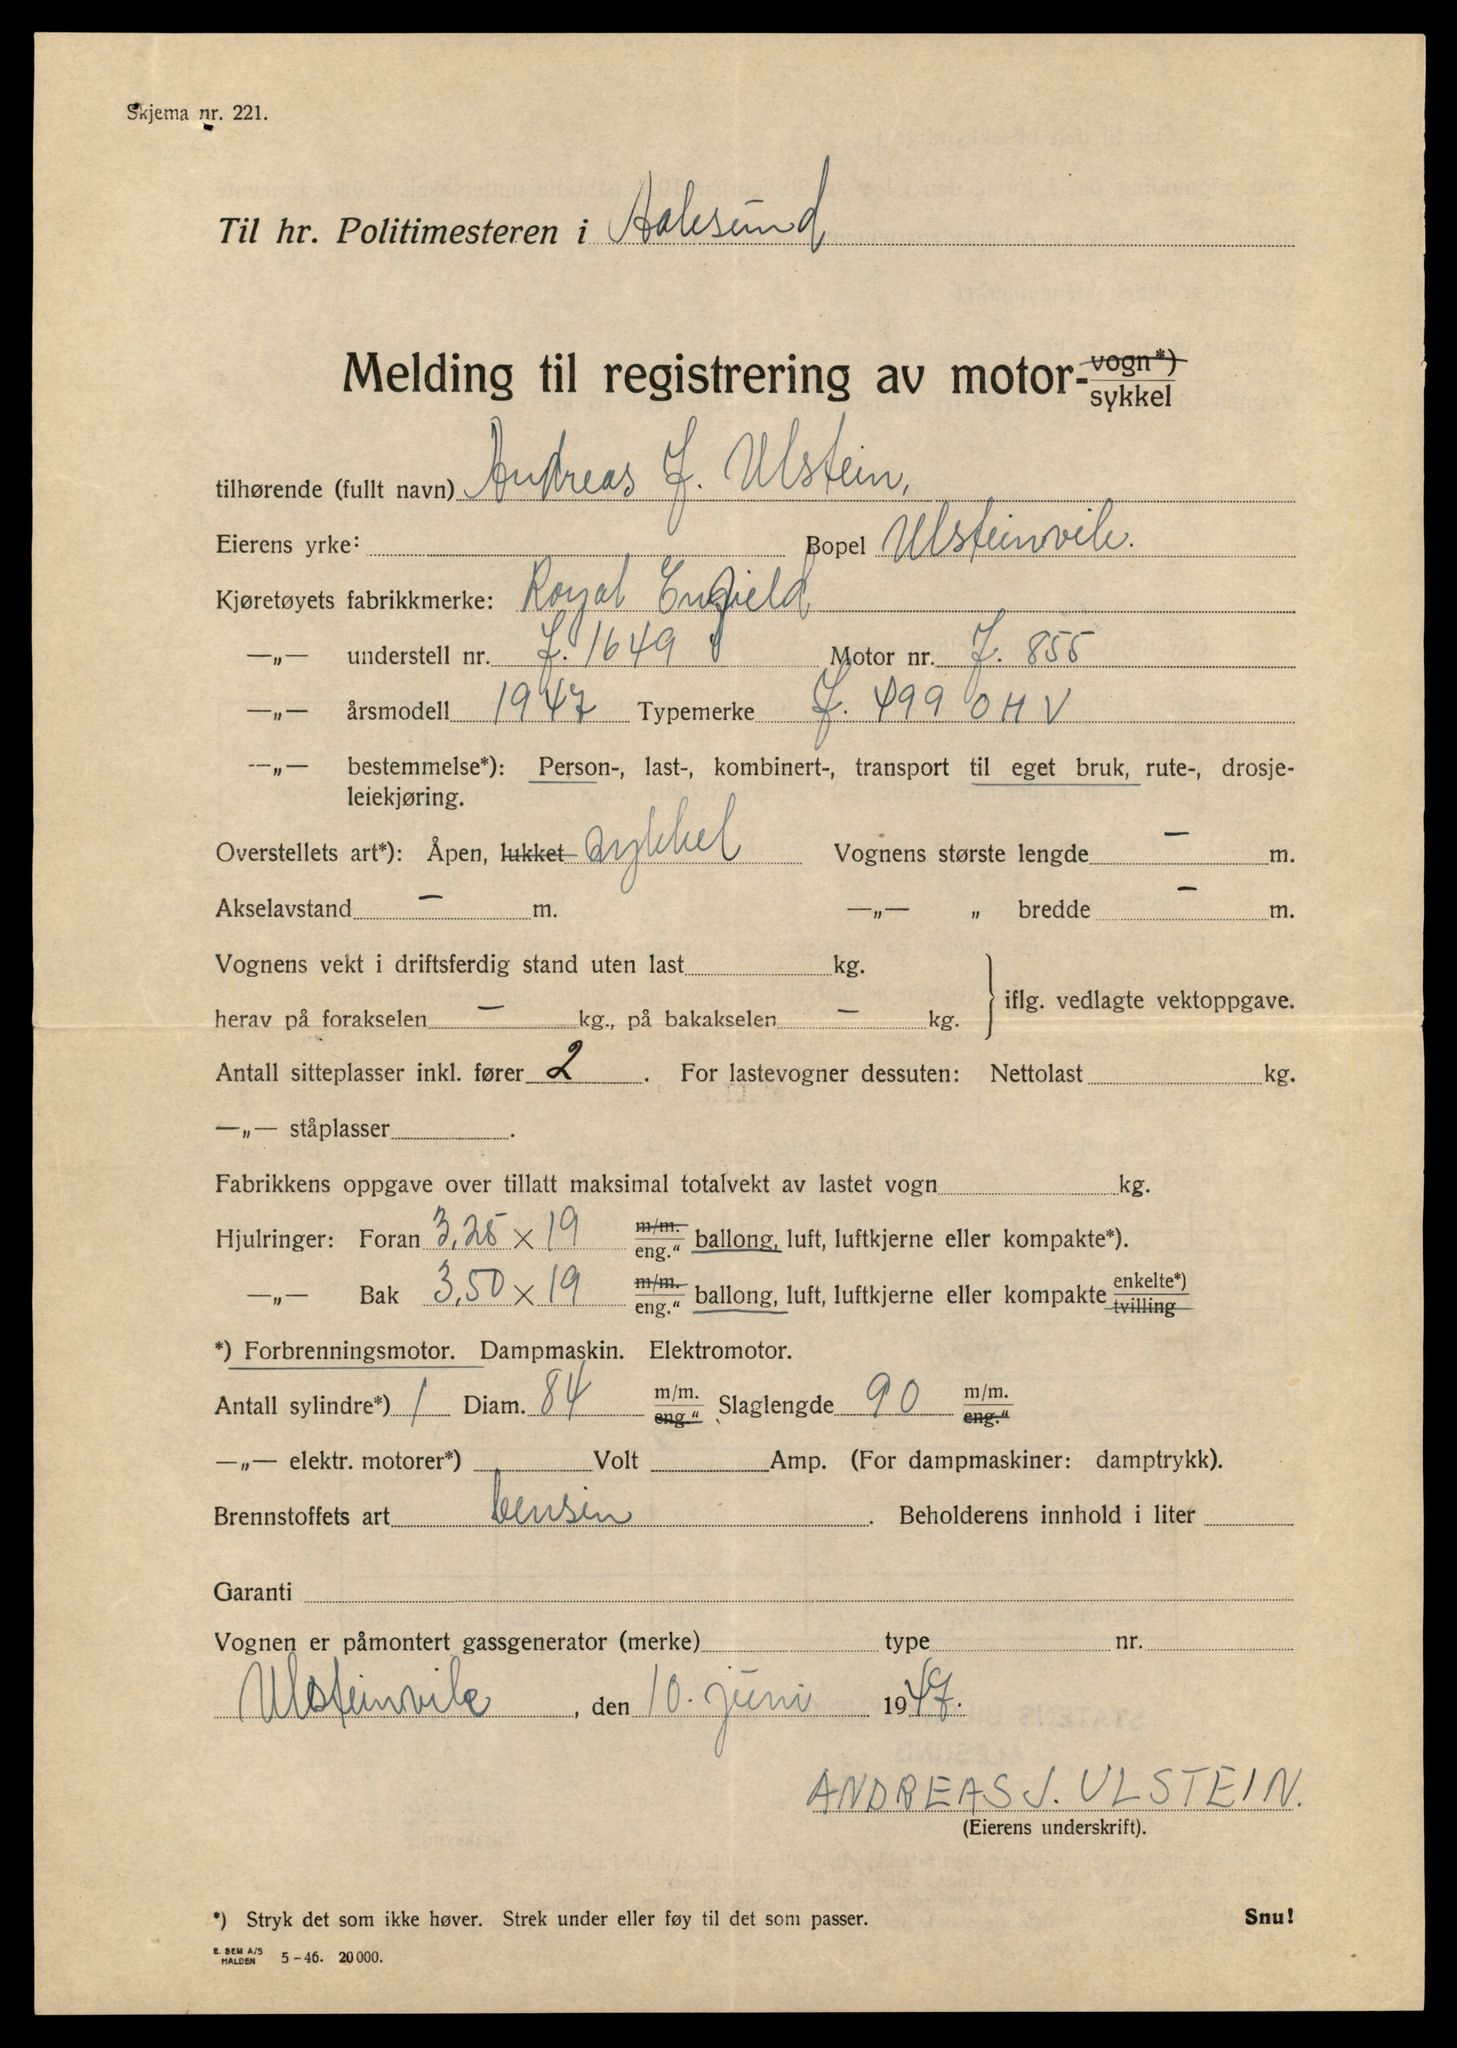 Skjema nr. 221.
Til hr. Politimesteren i Aalesund
Melding til registrering av motor-vogn*)
sykkel
tilhørende (fullt navn) Andreas J. Ulstein,
Eierens yrke: Bopel Ulsteinvik.
Kjøretøyets fabrikkmerke: Royal Enfield
—„— understell nr. J. 1649 Motor nr. J. 855
—„— årsmodell 1947 Typemerke J. 499 OHV
—„— bestemmelse*): Person-, last-, kombinert-, transport til eget bruk, rute-, drosje-
leiekjøring.
Overstellets art*): Åpen, lukket sykkel Vognens største lengde — m.
Akselavstand — m. —„— „ bredde — m.
Vognens vekt i driftsferdig stand uten last kg.
iflg. vedlagte vektoppgave.
herav på forakselen — kg., på bakakselen — kg.
Antall sitteplasser inkl. fører 2. For lastevogner dessuten: Nettolast kg.
—„— ståplasser.
Fabrikkens oppgave over tillatt maksimal totalvekt av lastet vogn kg.
Hjulringer: Foran 3,25 × 19 m/m. eng.“ ballong, luft, luftkjerne eller kompakte*).
—„— Bak 3,50 × 19 m/m. eng.“ ballong, luft, luftkjerne eller kompakte enkelte*) tvilling
*) Forbrenningsmotor. Dampmaskin. Elektromotor.
Antall sylindre*) 1 Diam. 84 m/m. eng.“ Slaglengde 90 m/m. eng.“
—„— elektr. motorer*) Volt Amp. (For dampmaskiner: damptrykk).
Brennstoffets art bensin. Beholderens innhold i liter
Garanti
Vognen er påmontert gassgenerator (merke) type nr.
Ulsteinvik, den 10. juni 1947.
ANDREAS J. ULSTEIN.
(Eierens underskrift).
*) Stryk det som ikke høver. Strek under eller føy til det som passer. Snu!
E. SEM A/S
HALDEN 5-46. 20000.